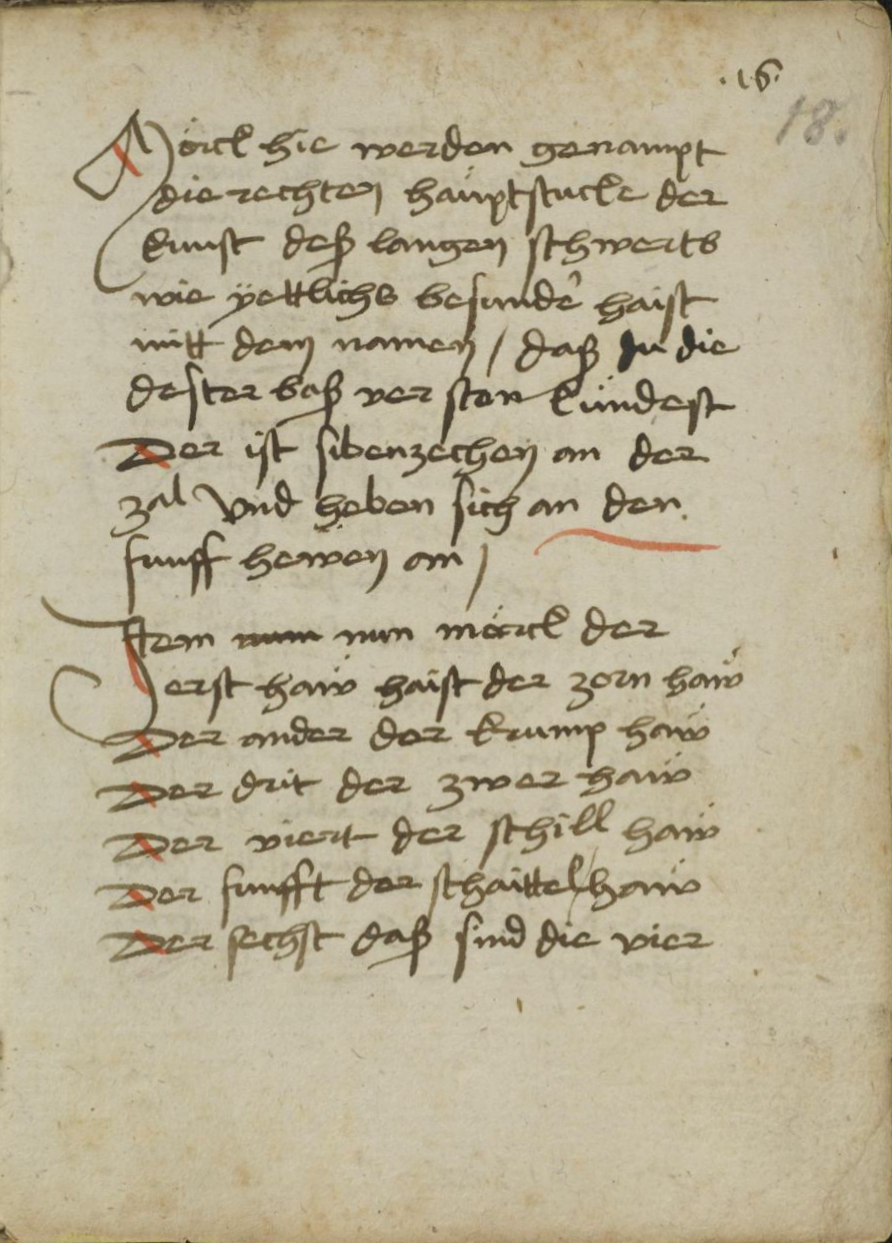 .16.
18.
Mörck hie werden genampt
die rechten hauptstucke der
kunst deß langen schwerts
wie yettlichs besunder haist
mitt dem namen / daß du die
dester baß ver sten kündest
Der ist sibenzechen an der
zal Vnd heben sich an den
funff hewen an /
Item num nun mörck der
erst haw haist der zorn haw
Der ander der krump haw
Der drit der zwer haw
Der viert der schill haw
Der funfft der schaittel haw
Der sechst daß sind die vier